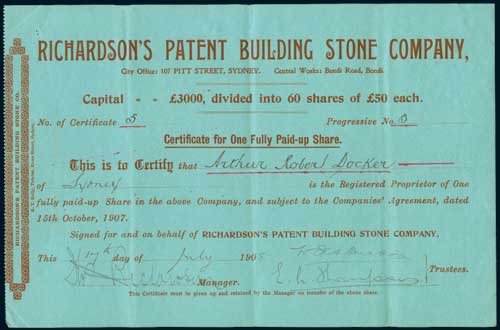 RICHARDSON'S PATENT BUILDING STONE COMPANY,
City Office: 107 PITT STREET, SYDNEY. Central Works: Bondi Road, Bondi.
Capital - - £3000, divided into 60 shares of £50 each.
No. of Certificate 5 Progressive No. 5
Certificate for One Fully Paid-up Share.
This is to Certify that Arthur Robert Docker
of Sydney is the Registered Proprietor of One
fully paid-up Share in the above Company, and subject to the Companies' Agreement, dated
15th October, 1907.
Signed for and on behalf of RICHARDSON'S PATENT BUILDING STONE COMPANY.
This day of July 190
Manager. E. L. Trustees.
This Certificate must be given up and retained by the Manager on transfer of the above share.
RICHARDSON'S PATENT BUILDING STONE CO.